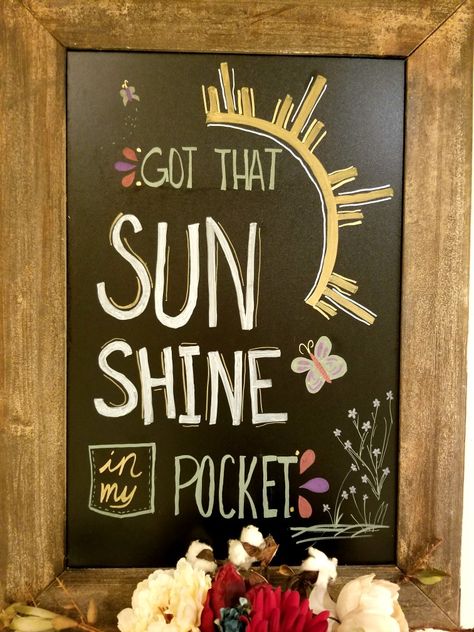 GOT THAT
SUN
SHINE
in my POCKET